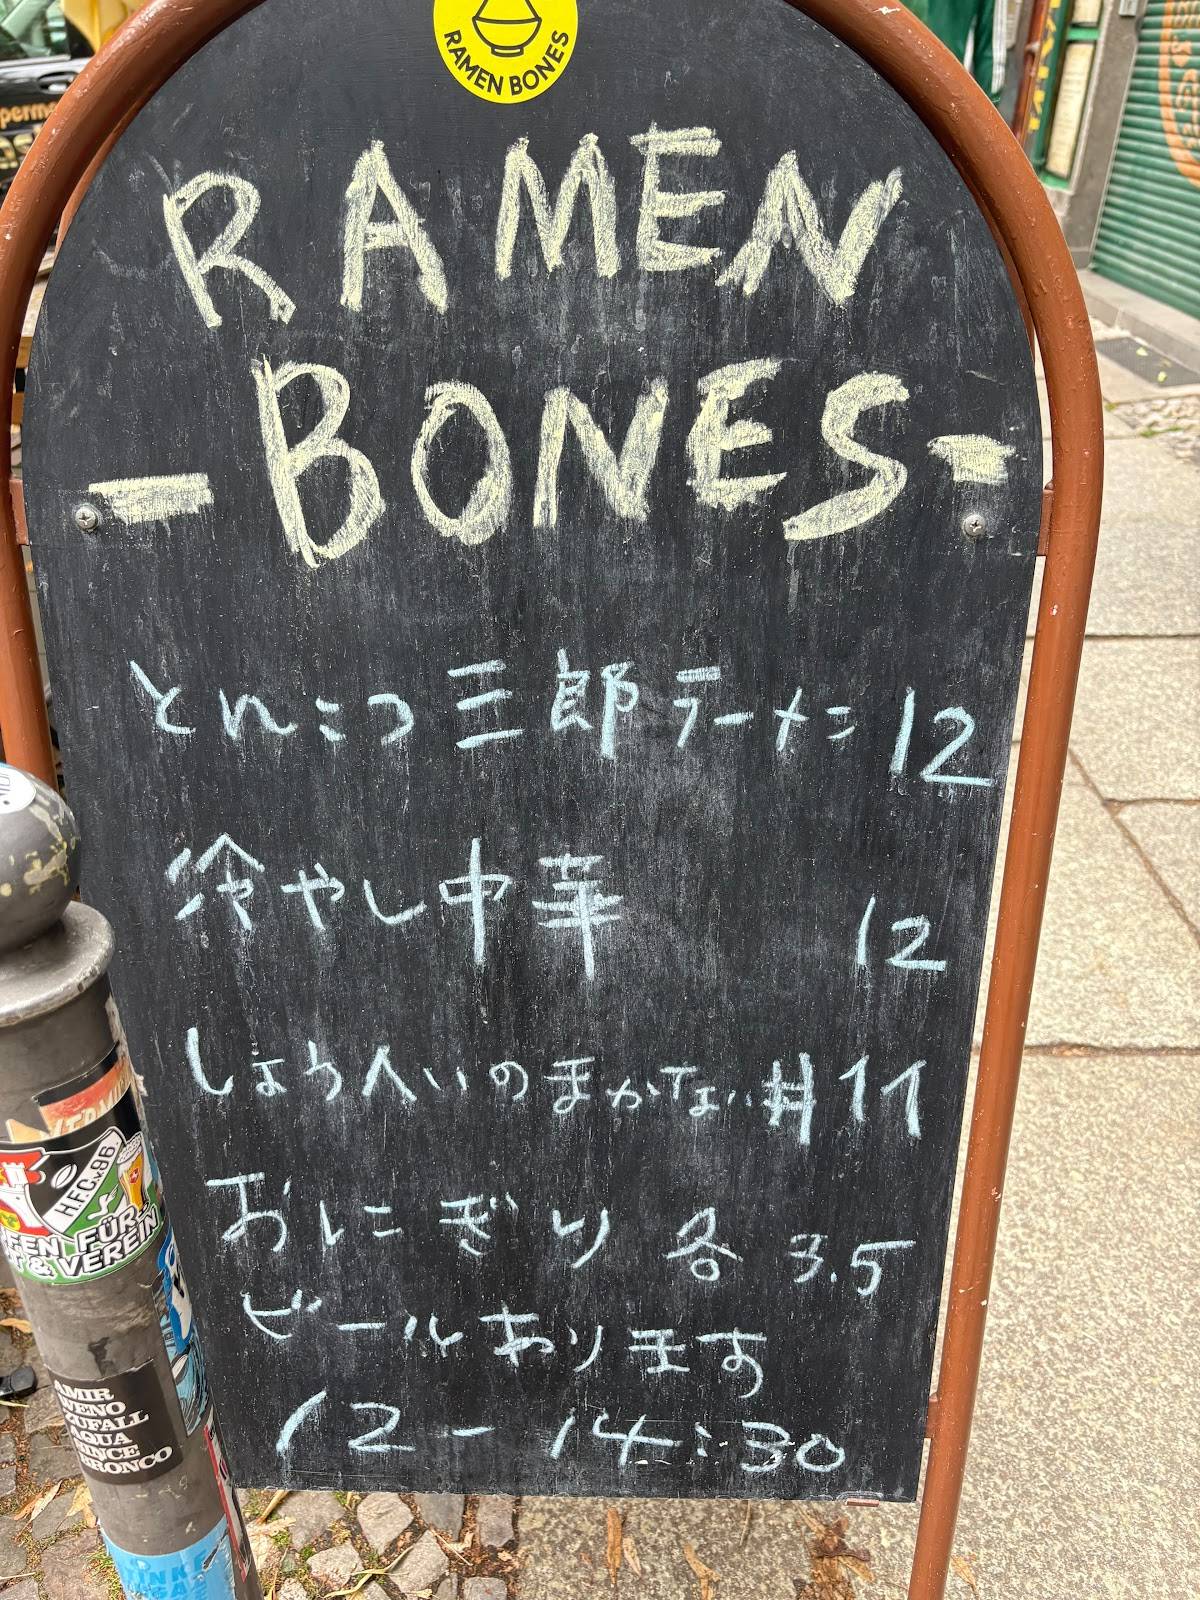 RAMEN BONES
RAMEN
-BONES-
とんこつ三郎ラーメン 12
冷やし中華 12
しょうへいのまかない丼 11
おにぎり 各 3.5
ビールあります
12-14:30
H.F.C. 96
FÜR
& VEREIN
AMIR
AQUA
BRONCO